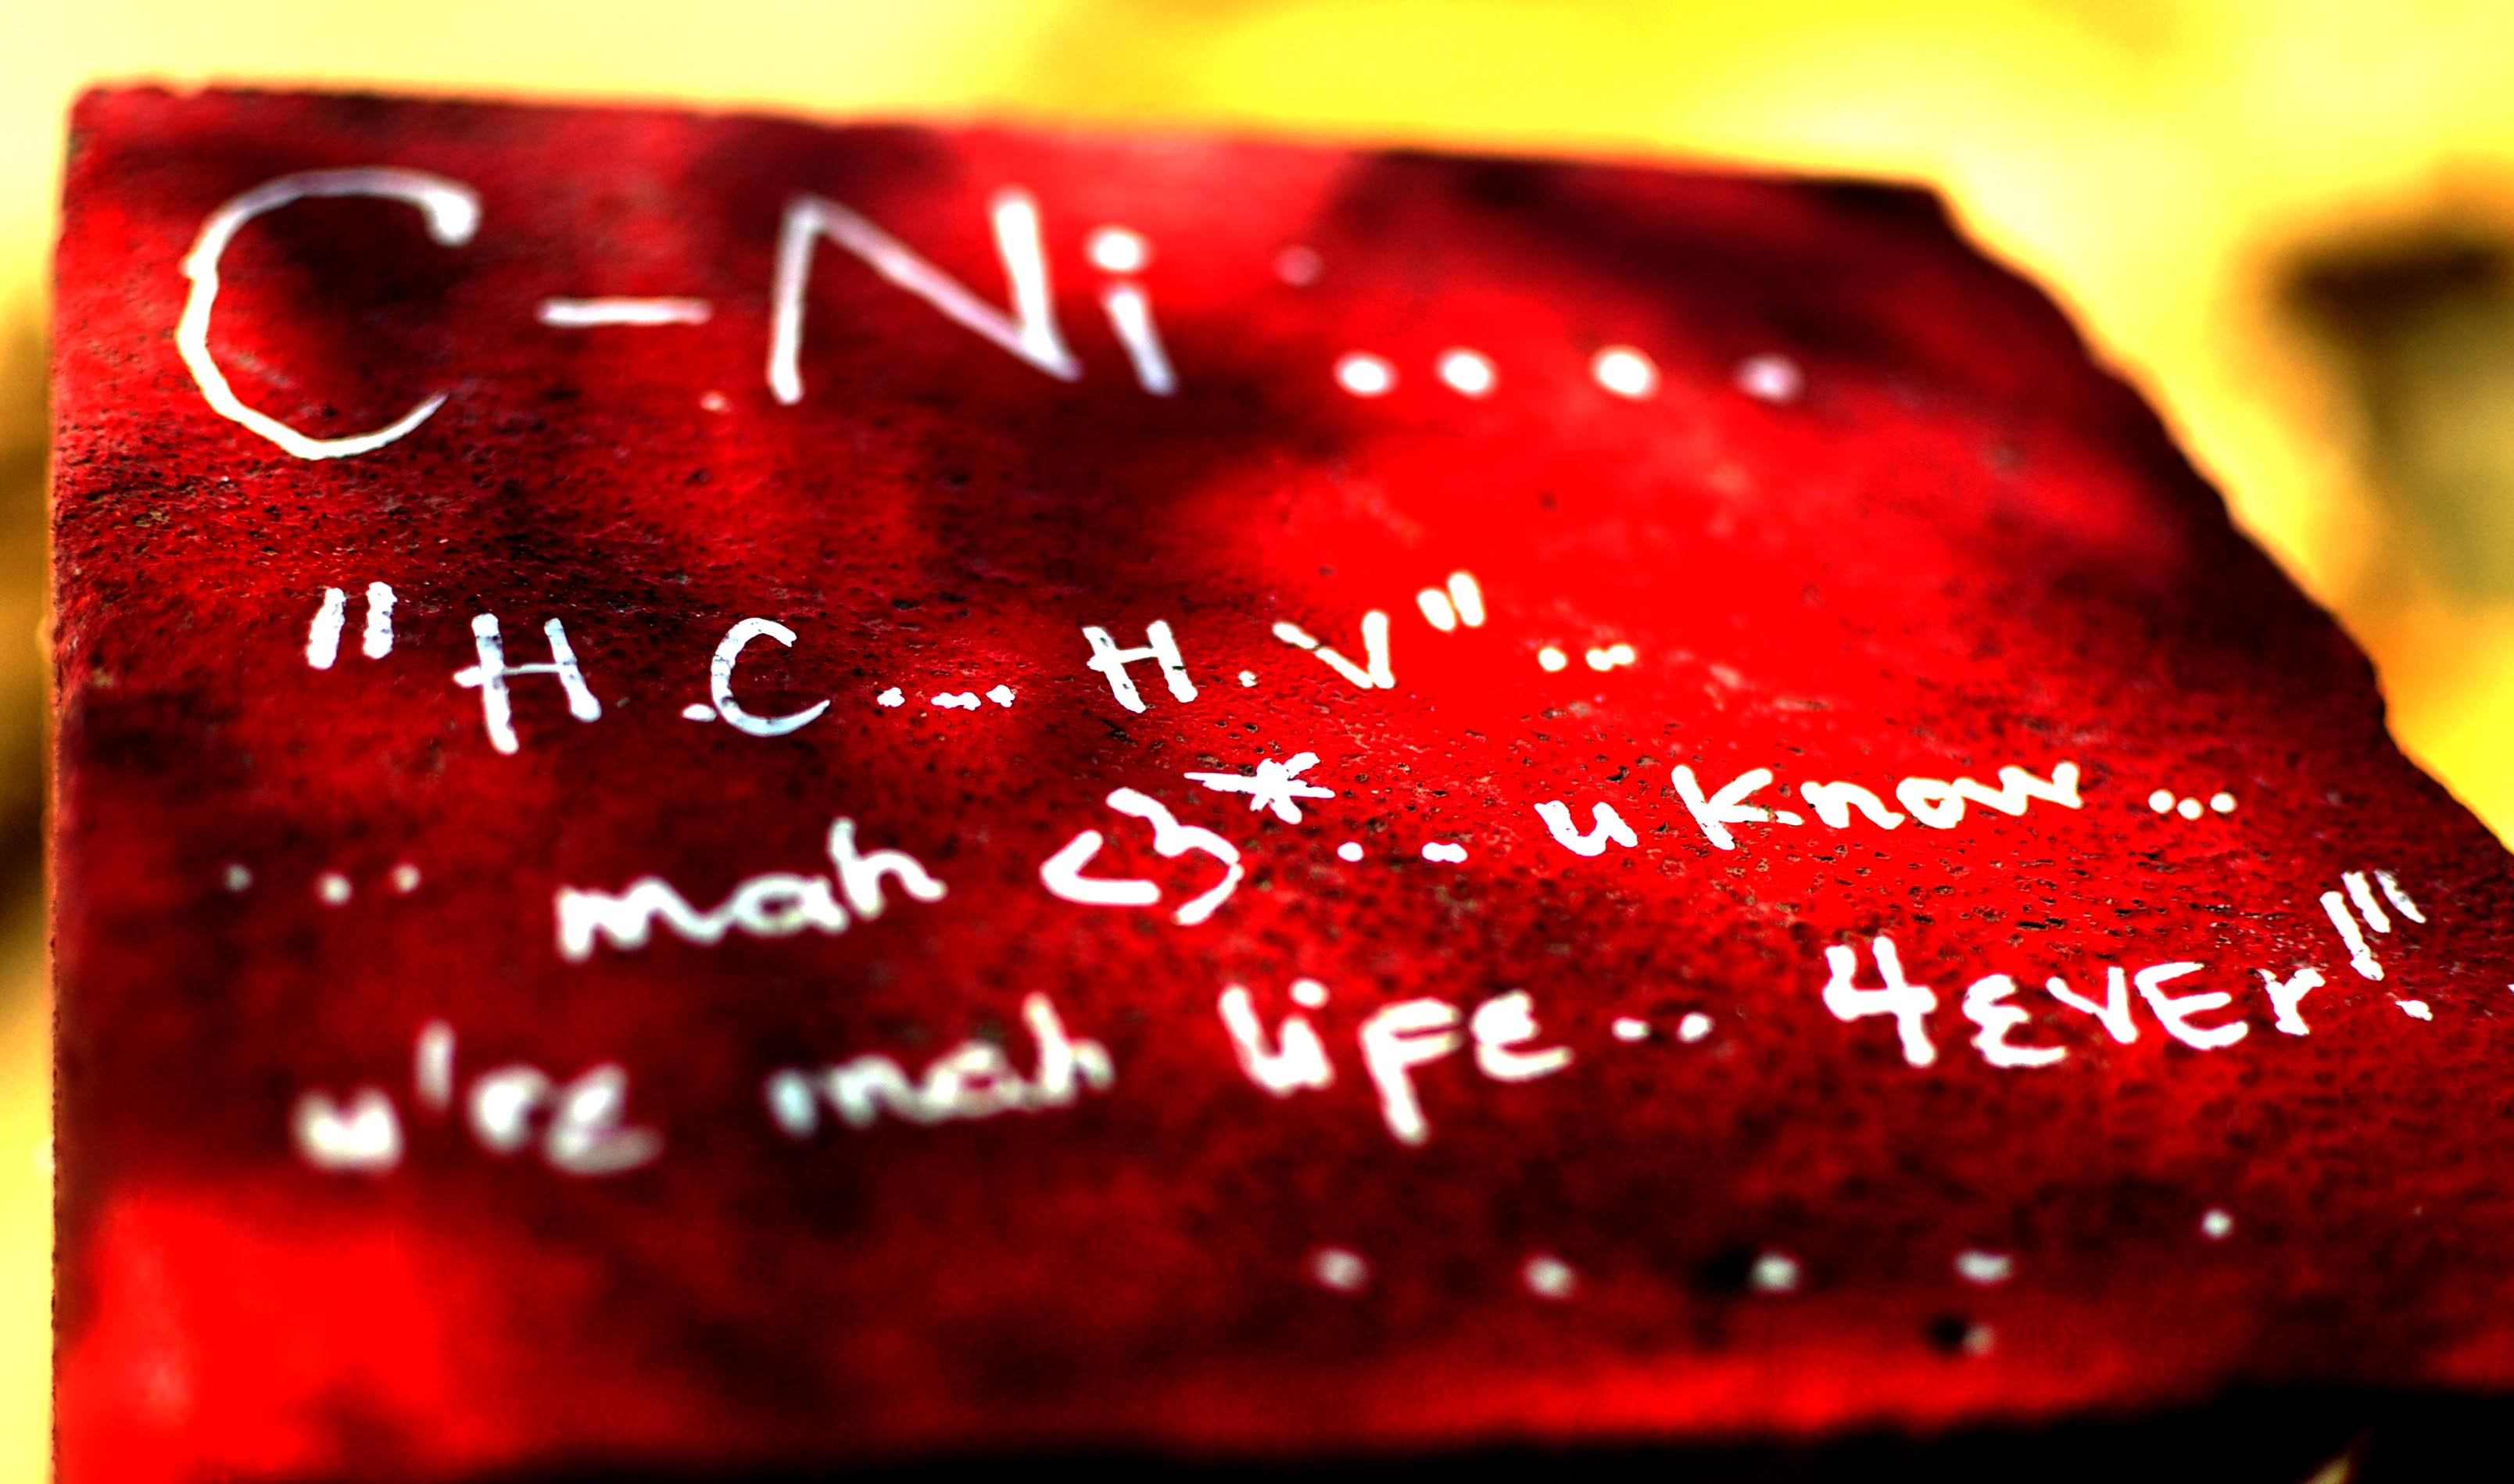 C-Ni ....
"H.C ... H.V" ...
... mah <3* ... u know ...
u're mah life ... 4EVEr!!!
.....